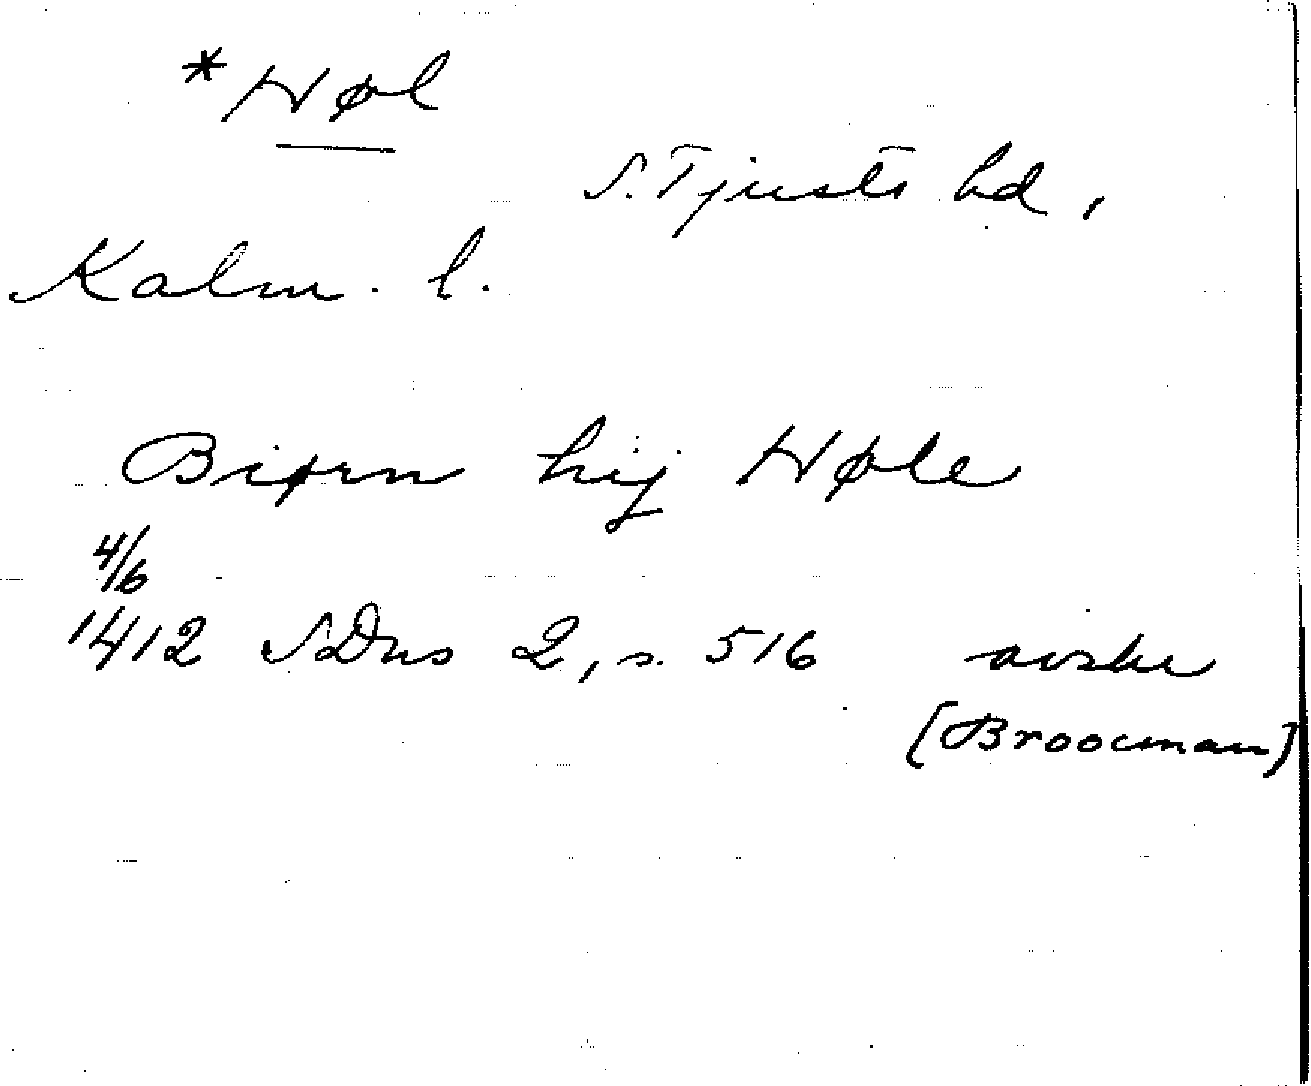 *Høl
S. Tjusts hd,
Kalm. l.
Biørn hij Høle
4/6
1412 SDns 2, s. 516 avskr
[Broocman]